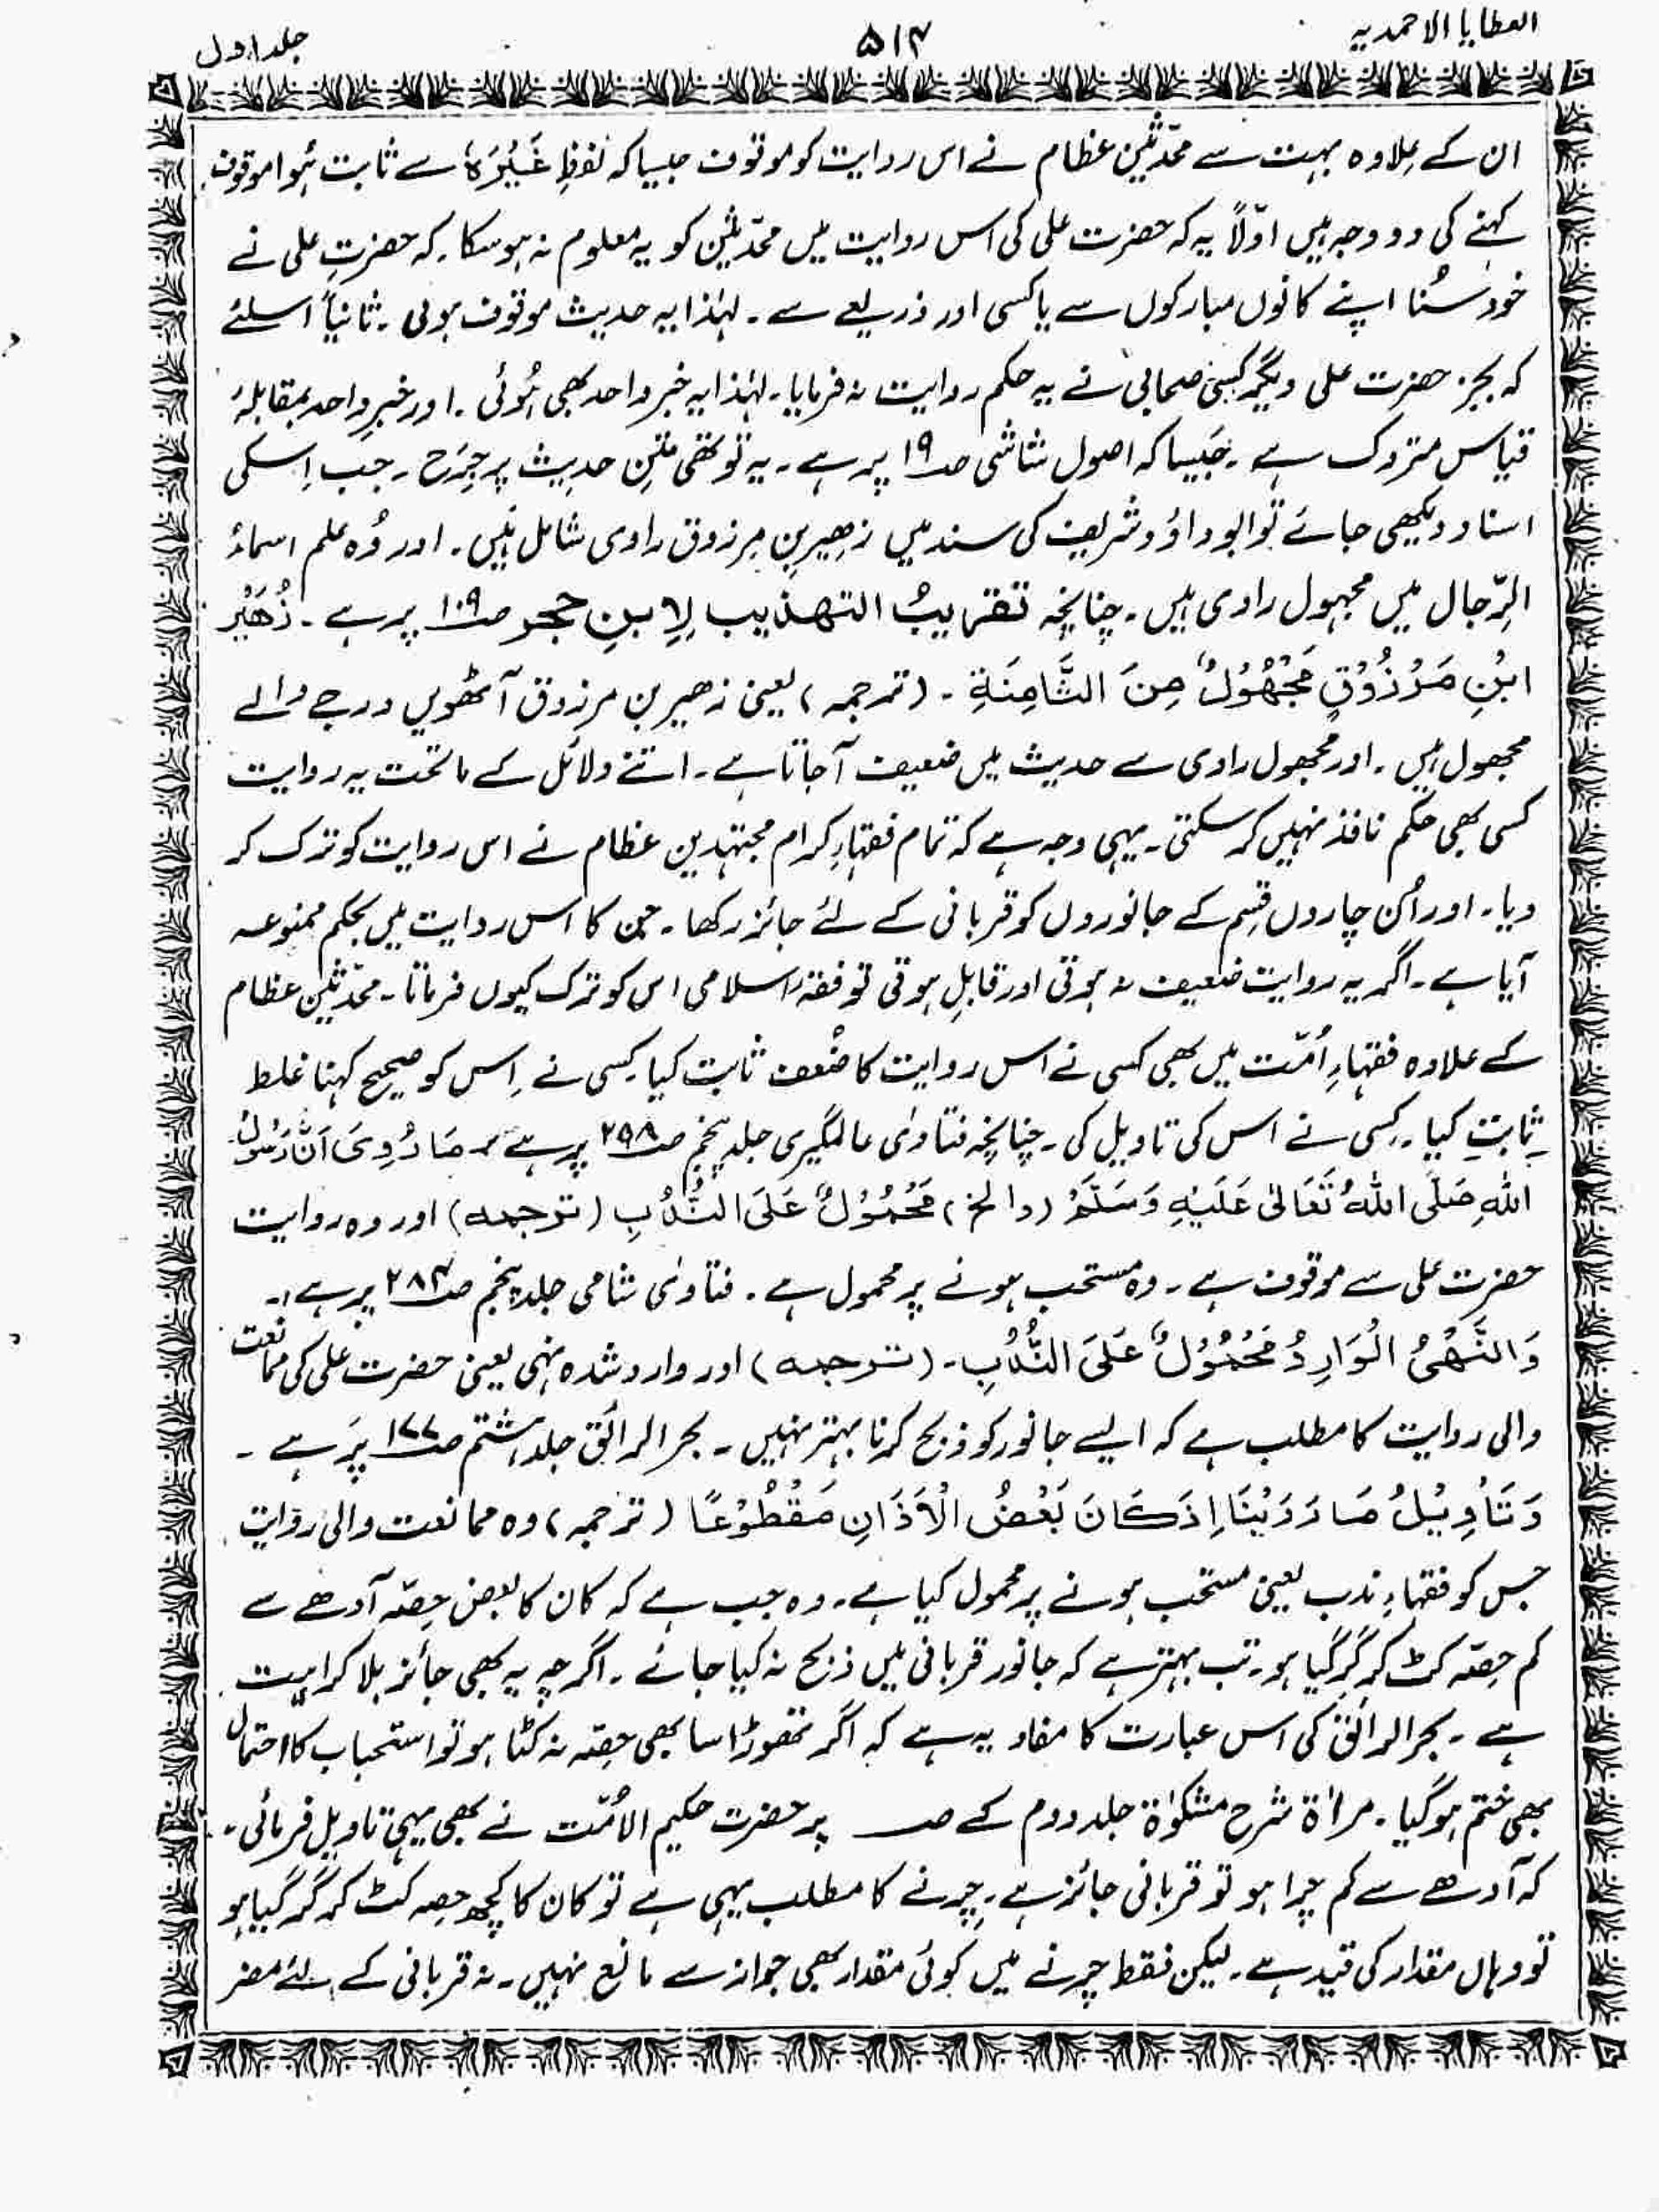 العطایا الاحمدیہ ۵۱۴ جلد اول
ان کے علاوہ بہت سے محدّثین عظام نے اس روایت کو موقوف جیسا کہ لفظِ غَیْرُہٗ سے ثابت ہُوا موقوف
کہنے کی دو وجہ ہیں اوّلاً یہ کہ حضرت علی کی اس روایت میں محدّثین کو یہ معلوم نہ ہو سکا۔ کہ حضرتِ علی نے
خود سُنا اپنے کانوں مبارکوں سے یا کسی اور ذریعے سے۔ لہٰذا یہ حدیث موقوف ہوئی۔ ثانیاً اسلئے
کہ بجز حضرت علی دیگر کسی صحابی نے یہ حکم روایت نہ فرمایا۔ لہٰذا یہ خبر واحد بھی ہُوئی۔ اور خبرِ واحد بمقابلہٗ
قیاس متروک ہے۔ جیسا کہ اصول شاشی صـ۱۹ پر ہے۔ یہ تو تھی متنِ حدیث پر جَرح۔ جب اِسکی
اسناد دیکھی جائے تو ابوداؤد شریف کی سند میں زھیر بن مرزوق راوی شامل ہیں۔ اور وُہ علم اسماءُ
الرِّجال میں مجہول راوی ہیں۔ چنانچہ تقریبُ التھذیب لِابنِ حجر صـ۱۰۹ پر ہے۔ زُھَیْر
ابْنِ مَرْزُوْقٍ مَجْھُوْلٌ مِنَ الثَّامِنَةِ۔ (ترجمہ) یعنی زھیر بن مرزوق آٹھویں درجے والے
مجھول ہیں۔ اور مجھول راوی سے حدیث میں ضعیف آ جاتا ہے۔ اتنے دلائل کے ماتحت یہ روایت
کسی بھی حکم نافذ نہیں کر سکتی۔ یہی وجہ ہے کہ تمام فقہاءِ کرام مجتہدین عظام نے اس روایت کو ترک کر
دیا۔ اور اُن چاروں قسم کے جانوروں کو قربانی کے لئے جائز رکھا۔ جن کا اس روایت میں بحکم ممنوعہ
آیا ہے۔ اگر یہ روایت ضعیف نہ ہوتی اور قابل ہوتی تو فقہ اسلامی اس کو ترک کیوں فرماتا۔ محدّثین عظام
کے علاوہ فقہاءِ اُمّت میں بھی کسی نے اس روایت کا ضُعف ثابت کیا۔ کسی نے اِس کو صحیح کہنا غلط
ثابت کیا۔ کسی نے اس کی تاویل کی۔ چنانچہ فتاوٰی عالمگیری جلد پنجم صـ۲۹۸ پر ہے مَا رُوِیَ اَنَّ رَسُوْلُ
اللّٰہِ صَلَّی اللّٰہُ تَعَالٰی عَلَیْہِ وَسَلَّمْ (الخ) مَحْمُوْلٌ عَلَی النُّدْبِ (ترجمہ) اور وہ روایت
حضرت علی سے موقوف ہے۔ وہ مستحب ہونے پر محمول ہے۔ فتاوٰی شامی جلد پنجم صـ۲۸۴ پر ہے:۔
وَالنَّھْیُ الْوَارِدُ مَحْمُوْلٌ عَلَی النُّدْبِ۔ (ترجمہ) اور وارد شدہ نہی یعنی حضرت علی کی ممانعت
والی روایت کا مطلب ہے کہ ایسے جانور کو ذبح کرنا بہتر نہیں۔ بحر الرائق جلد ہشتم صـ۱۷۷ پر ہے۔
وَتَأْوِیْلُ مَا رَوَیْنَا اِذَ کَانَ بَعْضُ الْاَذَانِ مَقْطُوْعًا (ترجمہ) وہ ممانعت والی روایت
جس کو فقہاءِ ندب یعنی مستحب ہونے پر محمول کیا ہے۔ وہ جب ہے کہ کان کا بعض حِصّہ آدھے سے
کم حِصّہ کٹ کر گر گیا ہو۔ تب بہتر ہے کہ جانور قربانی میں ذبح نہ کیا جائے۔ اگرچہ یہ بھی جائز بلا کراہت
ہے۔ بحر الرائق کی اس عبارت کا مفاد یہ ہے کہ اگر تھوڑا سا بھی حِصّہ نہ کٹا ہو تو استحباب کا احتمال
بھی ختم ہو گیا۔ مراٰۃ شرح مشکوٰۃ جلد دوم کے صـ پر حضرت حکیم الاُمّت نے بھی یہی تاویل فرمائی۔
کہ آدھے سے کم چِرا ہو تو قربانی جائز ہے۔ چِرنے کا مطلب یہی ہے تو کان کا کچھ حصہ کٹ کر گر گیا ہو
تو وہاں مقدار کی قید ہے۔ لیکن فقط چرنے میں کوئی مقدار بھی جواز سے مانع نہیں۔ نہ قربانی کے لئے مضر